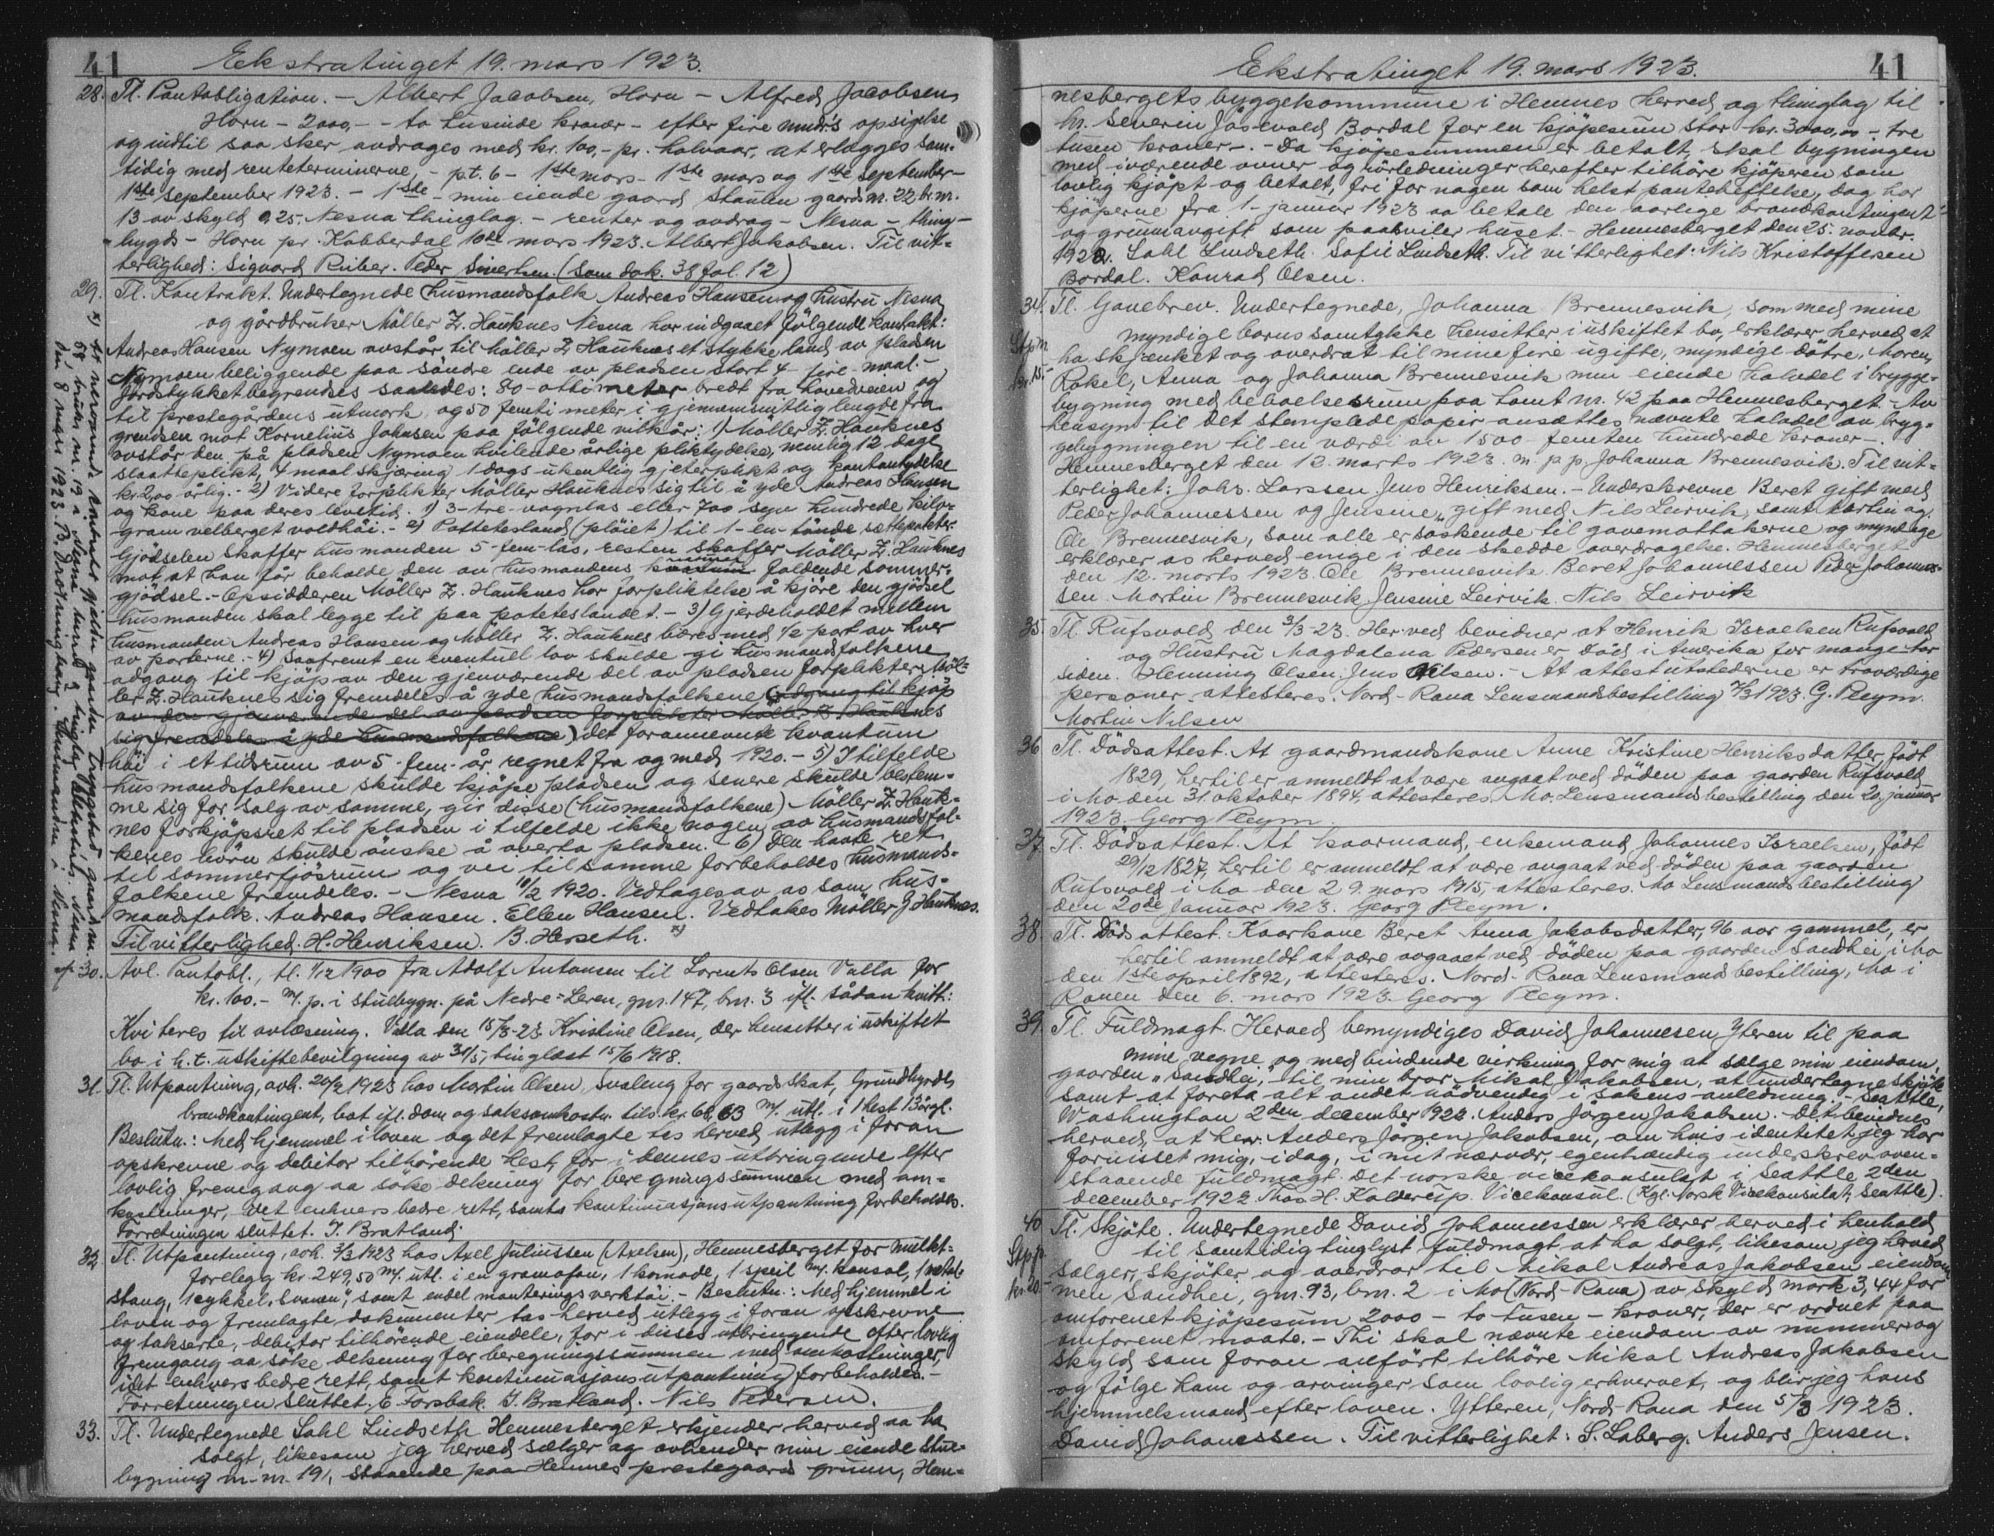 41
Ekstratinget 19. mars 1923.
28. Tl. Pantobligation. – Albert Jacobsen, Horn – Alfred Jacobsen,
Horn – 2000,- – to tusinde kroner – efter fire mndr's opsigelse
og indtil saa sker avdrages med kr. 100,- pr. halvaar, at erlægges sam-
tidig med renteterminerne, – pt. 6 – 1ste mars – 1ste mars og 1ste september –
1ste september 1923. – 1ste – min eiende gaard Staulen gaards nr. 22 br. nr.
13 av skyld 0,25 Nesna thinglag. – renter og avdrag – Nesna – thing –
bygds – Horn pr. Kobberdal 10de mars 1923. Albert Jakobsen. Til vit-
terlighed: Sigvard Riiber. Peder Sivertsen. (Som dok. 38 fol. 12)
29. Tl. Kontrakt. Undertegnede husmandsfolk Andreas Hansen og hustru Nesna
og gårdbruker Möller Z. Hauknes Nesna har indgaaet fölgende kontrakt:
Andreas Hansen Nymoen avstår til Möller Z Hauknes et stykke land av pladsen
Nymoen beliggende paa söndre ende av pladsen stort 4 – fire – maal.
Jordstykket begrendses saaledes: 80 – otti meter bredt fra hovedveien og
til prestegårdens utmark og 50 femti meter i gjennemsnitlig lengde fra
grendsen mot Kornelius Johnsen paa fölgende vilkår: 1) Möller Z. Hauknes
avstår den på pladsen Nymoen hvilende årlige pliktydelse, nemlig 12 dage
slaattepligt, 4 maal skjæring 1 dags ukentlig gjeterplikt og kontantydelse
kr 2,00 årlig. – 2) Videre forplikter Möller Hauknes sig til å yde Andreas Hansen
og kone paa deres levetid. 1) 3 – tre – vognlas eller 700 syv hundrede kilo-
gram velberget voldhöi. – 2) Potetesland (plöiet) til 1 – en tönde settepoteter.
Gjödselen skaffer husmanden 5 – fem – las, resten skaffer Möller Z. Hauknes
mot at han får beholde den av husmandens faldende sommer-
gjödsel. – Opsidderen Möller Z. Hauknes har forpliktelse å kjöre den gjödsel
husmanden skal legge til paa poteteslandet. – 3) Gjerdeholdet mellem
husmanden Andreas Hansen og Möller Z. Hauknes bæres med 1/2 part av hver
av parterne. – 4) Saafremt en eventuell lov skulde gi husmandsfolkene
adgang til kjöp av den gjenværende del av pladsen forplikter Möl-
ler Z. Hauknes sig fremdeles å yde husmandsfolkene (adgang til kjöp
av den gjenværende del av pladsen forplikter Möller Z Hauknes
sig fremdeles å yde husmandsfolkene) det forannevnte kvantum
höi i et tidsrum av 5 – fem – år regnet fra og med 1920. – 5) I tilfelde
husmandsfolkene skulde kjöpe pladsen og senere skulde bestem-
me sig for salg av samme, gir disse (husmandsfolkene) Möller Z. Hauk-
nes forkjöpsret til pladsen i tilfelde ikke nogen av husmandsfol-
kenes börn skulde önske å overta pladsen. – 6) Den havte ret
til sommerfjösrum og vei til samme forbeholdes husmands-
folkene fremdeles. – Nesna 10/2 1920. Vedtages av os som hus-
mandsfolk. Andreas Hansen. Ellen Hansen. Vedtakes Möller Z Hauknes.
Til vitterlighed. H. Henriksen. B. Herseth. x)
x) At nerværende kontrakt gjelder gaarden Zahlgaard, gaards nr.
58, bruks nr. 19 i Nesna herred og tinglag bekreftes. Nesna
den 8 mars 1923. B. Drotningsvaag. Lensmanden i Nesna.
30. Avl. Pantobl., tl. 1/12 1900 fra Adolf Antonsen til Lorents Olsen Valla for
kr. 100.- m. p. i stuebygn. på Nedre-Leren, gnr. 147, bnr. 3 ifl. sådan kvitt.:
Kviteres til avlæsning. Valla den 15/3-23 Kristine Olsen, der hensetter i uskiftet
bo i h. t. uskiftebevilgning av 31/5, tinglæst 15/6 1918.
31. Tl. Utpantning, avh. 20/2 1923 hos Martin Olsen, Svaleng for gaardsskat, Grundbyrdes
brandkontingent, bot ifl. dom og saksomkostn. tils. kr. 68,63 m. utl. i 1 hest 13 årgl.
Beslutn.: Med hjemmel i loven og det fremlagte tas herved utlegg i foran
opskrevne og debitor tilhörende hest, for i dennes utbringende efter
lovlig fremgang aa söke dekning for beregningssummen med om-
kostninger, idet enhvers bedre rett, samt kontinuasjonsutpantning forbeholdes.
Forretningen sluttet. J. Bratland.
32. Tl. Utpantning, avh. 2/3 1923 hos Axel Juliussen (Axelsen), Hemnesberget for mulkt-
forelegg kr. 249,50 m. utl. i en gramofon, 1 komode, 1 speil m. konsol, 1
stang, 1 cykkel "Svanen", samt endel monteringsverktöi. – Beslutn.: Med hjemmel i
loven og fremlagte dokumenter tas herved utlegg i foran opskrevne
og takserte, debitor tilhörende eiendele, for i disses utbringende efter lovlig
fremgang aa söke dekning for beregningssummen med omkostninger,
idet enhvers bedre rett, samt kontinuasjonsutpantning forbeholdes. –
Forretningen sluttet. E. Forsbak. J. Bratland. Nils Pedersen.
33. Tl. Undertegnede Sahl Lindseth Hemnesberget erkjender herved aa ha
solgt, likesom jeg herved sælger og avhender min eiende stue-
bygning m.-nr. 191, staaende paa Hemnes prestegaards grunn, Hem-
41
Ekstratinget 19. mars 1923.
nesbergets byggekommune i Hemnes herred og thinglag til
hr. Severin Jösevold Bardal for en kjöpesum stor kr. 3000,00 – tre
tusen kroner –. – Da kjöpesummen er betalt, skal bygningen
med iværende ovner og rörledninger herefter tilhöre kjöperen som
lovlig kjöpt og betalt, fri for nogen som helst panteheftelse, dog har
kjöperne fra 1 – januar 1923 aa betale den aarlige brandkontingent
og grunnavgift som paahviler huset. – Hemnesberget den 25. novbr.
1922. Sahl Lindseth. Sofie Lindseth. Til vitterlighet: Nils Kristoffersen
Bardal. Konrad Olsen.
34. Tl. Gavebrev. Undertegnede, Johanna Brennesvik, som med mine
Stpm
kr. 15,-
myndige barns samtykke hensitter i uskiftet bo, erklærer herved at
ha skjenket og overdrat til mine fire ugifte, myndige dötre, Maren,
Rakel, Anna og Johanna Brennesvik min eiende halvdel i brygge-
bygning med beboelsesrum paa tomt nr. 42 paa Hemnesberget. Av
hensyn til det stemplede papir ansættes nævnte halvdel av bryg-
gebygningen til en værdi av 1500 – femten hundrede kroner –.
Hemnesberget den 12. marts 1923. m. p. p. Johanna Brennesvik. Til vit-
terlighet: Johs. Larssen Jens Henriksen. – Underskrevne Beret gift med
Peder Johannessen og Jensine, gift med Nils Leirvik, samt Martin og
Ole Brennesvik, som alle er söskende til gavemottakerne og myndige
erklærer os herved enige i den skedde overdragelse. Hemnesberget
den 12. marts 1923. Ole Brennesvik Beret Johannessen Peder Johannes-
sen. Martin Brennesvik Jensine Leirvik. Nils Leirvik
35. Tl. Rufsvold den 3/3-23. Her ved bevidner at Henrik Israelsen Rufsvold
og Hustru Magdalena Pedersen er död i Amerika for mange aar
siden. Henning Olsen. Jens Nilsen. – At attestutstederne er troværdige
personer attesteres. Nord-Rana Lensmandsbestilling 7/3 1923. G. Pleym.
Martin Nilsen
36. Tl. Dödsattest. At gaardmandskone Anne Kristine Henriksdatter född
1829, hertil er anmeldt at være avgaat ved döden paa gaarden Rufsvold
i Mo den 31. oktober 1894, attesteres. Mo. Lensmandsbestilling den 20, januar
1923. Georg Pleym.
37. Tl. Dödsattest. At kaarmand, enkemand Johannes Israelsen, född
29/12 1827, hertil er anmeldt at være avgaat ved döden paa gaarden
Rufsvold i Mo den 29. mars 1915, attesteres. Mo Lensmandsbestilling
den 20de Januar 1923. Georg Pleym.
38. Tl. Dödsattest. Kaarkone Beret Anna Jakobsdatter, 96 aar gammel, er
hertil anmeldt at være avgaaet ved döden paa gaarden Sandhei i Mo
den 1ste april 1892, attesteres. Nord-Rana Lensmandsbestilling, Mo i
Ranen den 6. mars 1923. Georg Pleym.
39. Tl. Fuldmagt. Herved bemyndiges David Johannesen, Yteren til paa
mine vegne og med bindende virkning for mig at sælge min eiendom,
gaarden "Sandhei," til min bror Mikal Jakobsen, at undertegne skjöte
samt at foreta alt andet nödvendig i sakens anledning. – Seattle,
Washington 2den december 1922. Anders Jörgen Jakobsen. – Det bevidnes
herved, at herr. Anders Jörgen Jakobsen, om hvis identitet jeg har
forvisset mig, idag, i mit nærvær, egenhændig underskrev oven-
staaende fuldmagt. Det norske vicekonsulat i Seattle 2den
december 1922. Thos H. Kolderup. Vicekonsul. (Kgl. Norsk Vicekonsulat, Seattle).
40. Tl. Skjöte. Undertegnede David Johannessen erklærer herved i henhold
Stpp.
kr. 20,-
til samtidig tinglyst fuldmagt at ha solgt, likesom jeg herved
sælger, skjöter og overdrar til Mikal Andreas Jakobsen eiendom-
men Sandhei, gnr. 93, bnr. 2 i Mo (Nord-Rana) av skyld mark 3,44 for
omforenet kjöpesum 2000 – to tusen – kroner, der er ordnet paa
omforenet maate. – Thi skal nævnte eiendom av nummer og
skyld som foran anfört tilhöre Mikal Andreas Jakobsen
og fölge ham og arvinger som lovlig erhvervet, og blir jeg hans
hjemmelsmand efter loven. Ytteren, Nord-Rana den 5/3 1923.
David Johannessen. Til vitterlighet: S. Laberg. Anders Jensen.